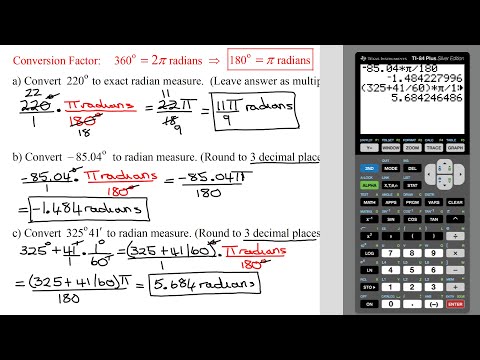 Conversion Factor: 360° = 2π radians ⇒ 180° = π radians
a) Convert 220° to exact radian measure. (Leave answer as multip
22 11
220° / 1 · π radians / 180° = 22π / 18 = 11π / 9 radians
18 9
b) Convert −85.04° to radian measure. (Round to 3 decimal places
-85.04° / 1 · π radians / 180° = -85.04π / 180
= -1.484 radians
c) Convert 325°41′ to radian measure. (Round to 3 decimal places
325° + 41′ / 1 · 1° / 60′ = (325 + 41/60)° / 1 · π radians / 180°
= (325 + 41/60)π / 180 = 5.684 radians
TEXAS INSTRUMENTS TI-84 Plus Silver Edition
-85.04*π/180
-1.484227996
(325+41/60)*π/1
5.684246486
Y= WINDOW ZOOM TRACE GRAPH
2ND MODE DEL
ALPHA X,T,θ,n STAT
MATH APPS PRGM VARS CLEAR
x⁻¹ SIN COS TAN ^
x² , ( ) ÷
LOG 7 8 9 ×
LN 4 5 6 −
STO▸ 1 2 3 +
ON 0 . (−) ENTER